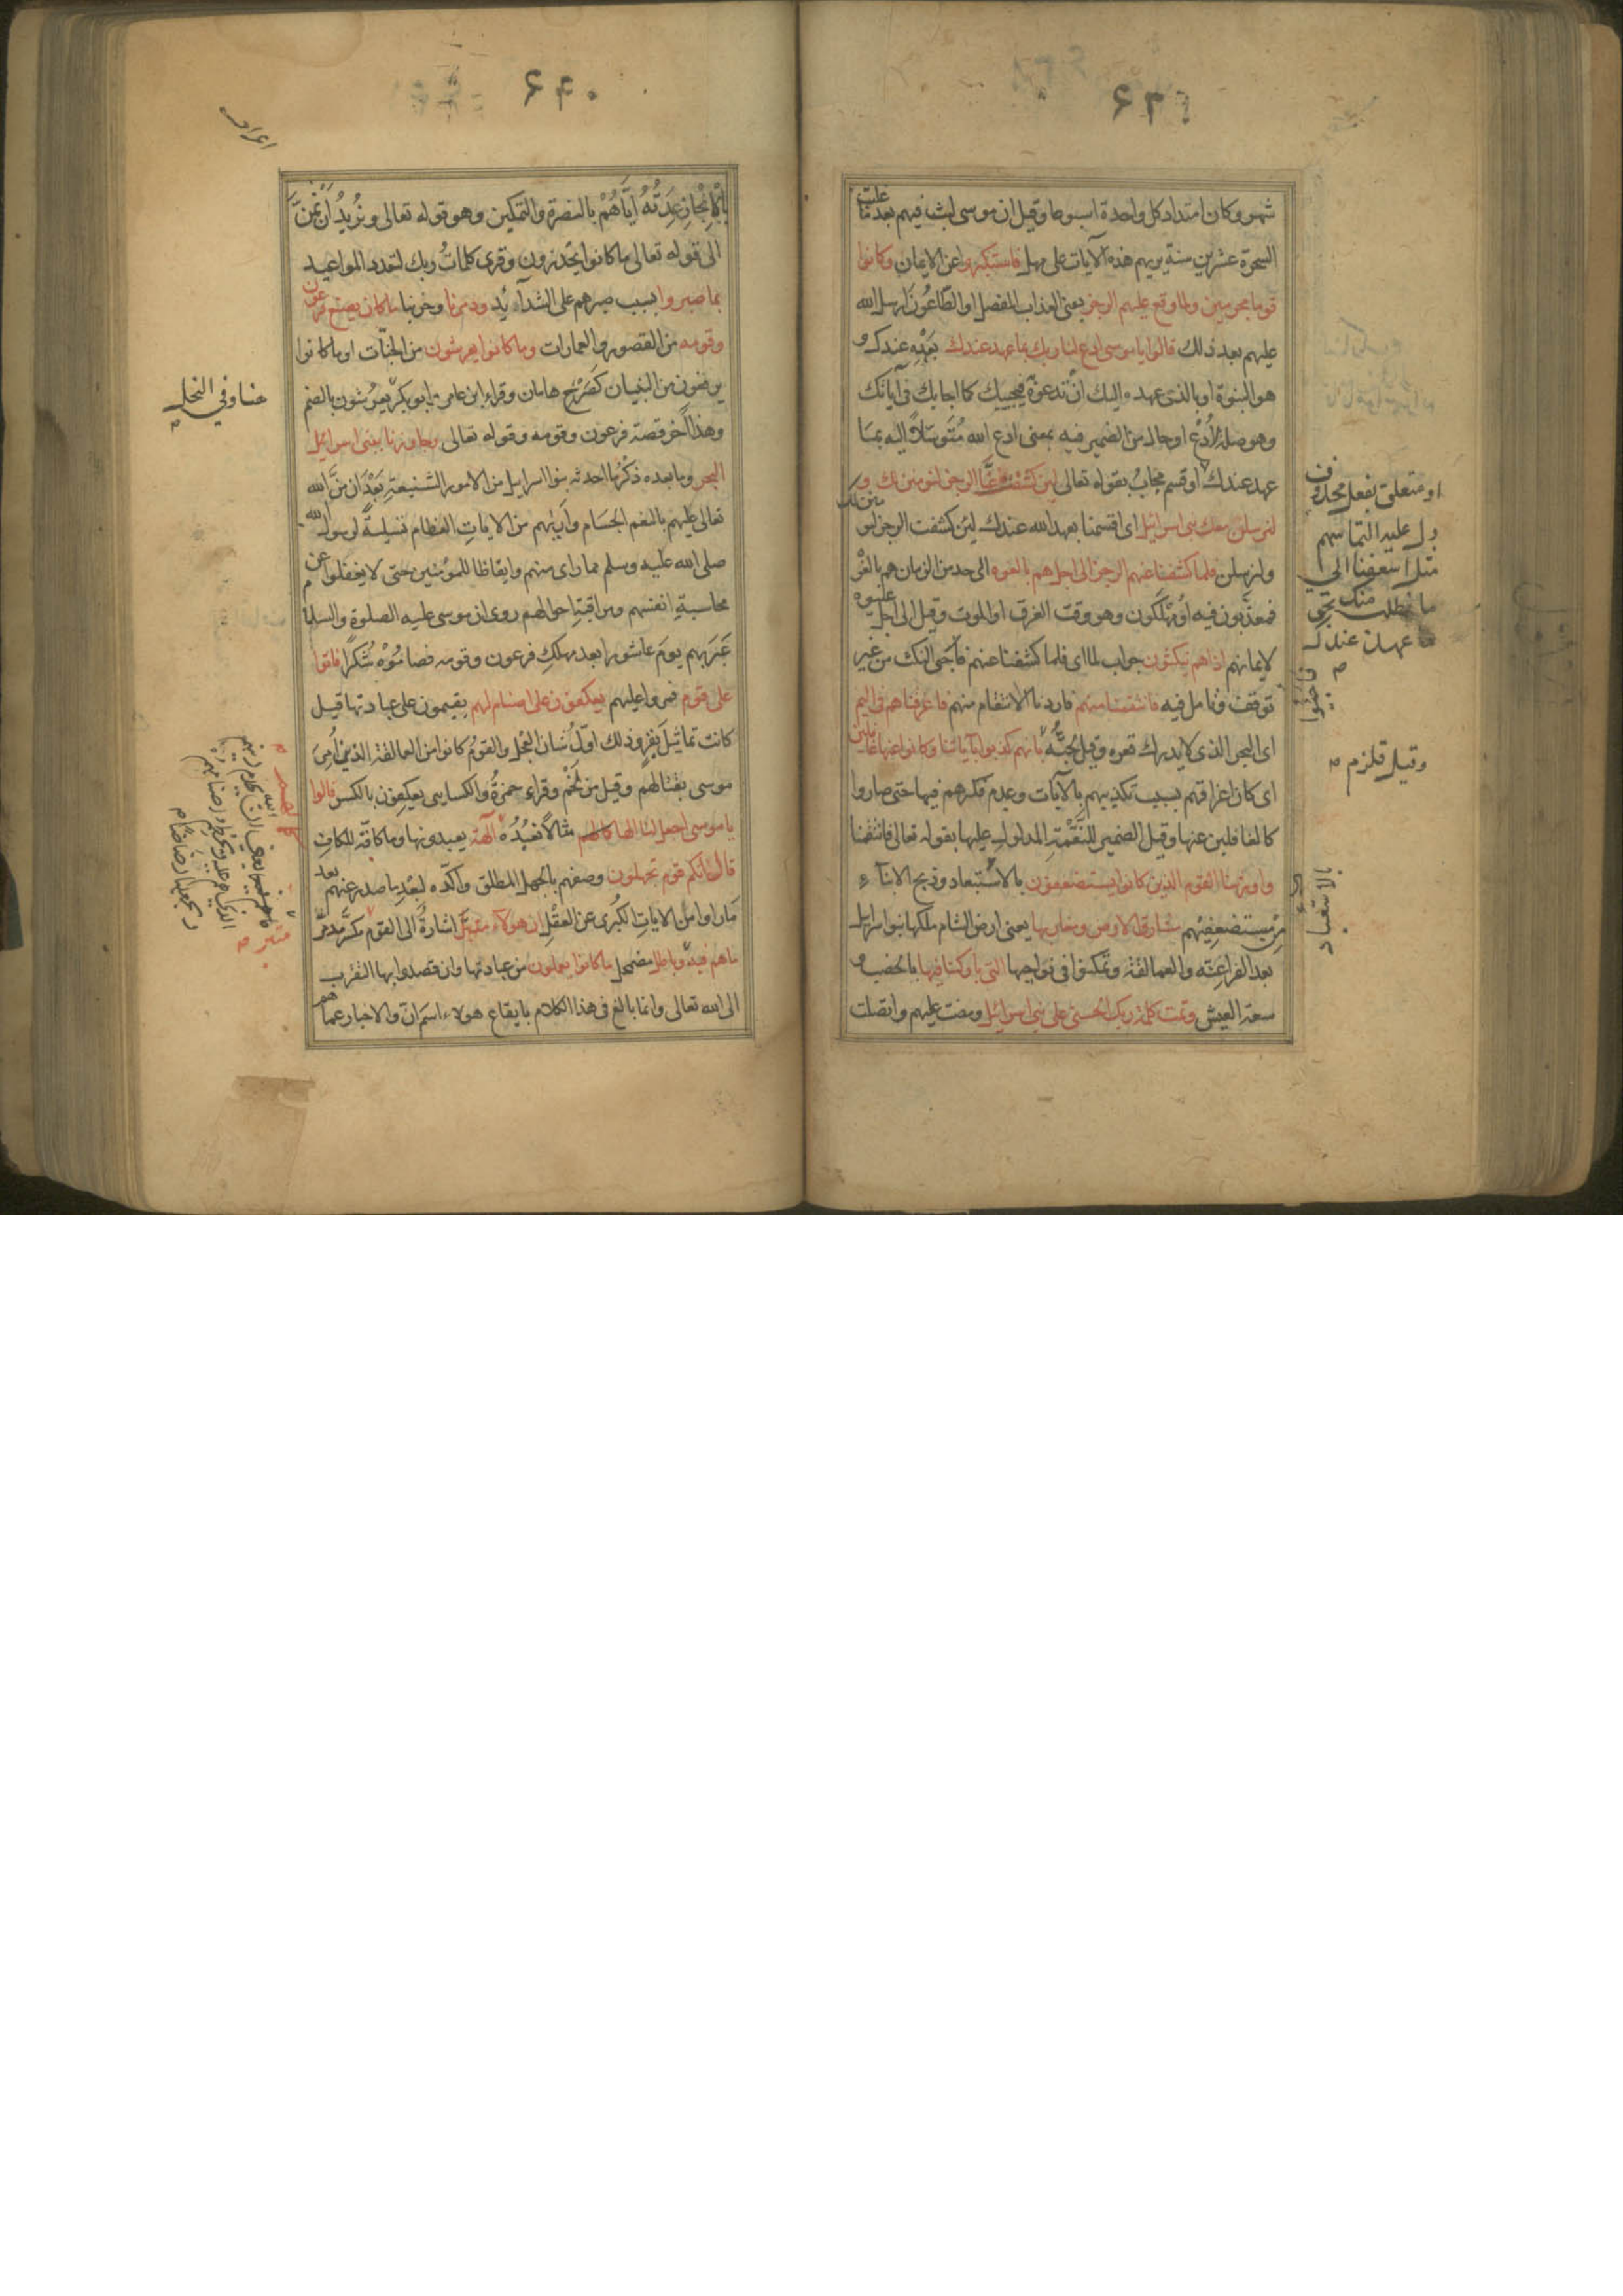 شهر وكان امتداد كل واحدة اسبوعا وقيل ان موسى لبث فيهم بعدما غلب
السحرة عشرين سنة يريهم هذه الآيات على مهل فاستكبروا عن الايمان وكانوا
قوما مجرمين ولما وقع عليهم الرجز يعنى العذاب المفصل او الطّاعُونَ ارسل الله
عليهم بعد ذلك قالوا يا موسى ادع لنا ربك بما عهد عندك بعَهْدِه عندك و
هو النبوة او بالذى عهده اليك انْ تدعوَهُ فيجيبك كما اجابك فى آياتك
وهو صلة لأُدْعُ او حال من الضمير فيه بمعنى ادع الله مُتَوسّلاً اليه بما
عهد عندك او قسم مجابٌ بقوله تعالى لئن كشفت عنّا الرجز لنؤمنن لك و
لنرسلن معك بنى اسرائيل اى اقسمنا بعهد الله عندك لئن كشفت الرجز لنؤمنن لك
ولنرسلن فلما كشفنا عنهم الرجز الى اجل هم بالغوه الى حد من الزمان هم بالغوه
فمعذّبون فيه اوْ مُهْلَكون وهو وقت الغرق او الموت وقيل الى اجل عيّنوه
لايمانهم اذا هم ينكثون جواب لما اى فلما كشفنا عنهم فاجئ النكث من غير
توقف وتأمل فيه فانتقمنا منهم فاردنا الانتقام منهم فاغرقناهم فى اليم
اى البحر الذى لا يدرك قعره وقيل لُجّتُهُ بانهم كذبوا بآياتنا وكانوا عنها غافلين
اى كان اغراقهم بسبب تكذيبهم بالآيات وعدم فكرهم فيها حتى صاروا
كالغافلين عنها وقيل الضمير للنَّقْمَةِ المدلول عليها بقوله تعالى فانتقمنا
واورثنا القوم الذين كانوا يستضعفون بالاستبعاد وذبح الابناء
مِن مستضعفيهم مشارق الارض ومغاربها يعنى ارض الشام ملكها بنو اسرائيل
بعد الفراعِنَة والعمالقة وتمكنوا فى نواحيها التى باركنا فيها بالخصب و
سعة العيش وتمت كلمة ربك الحسنى على بنى اسرائيل ومضت عليهم واتصلت
او متعلق بفعل محذوف
دل عليه التماسهم
مثل اسعفنا الى
ما نطلب منك بحق
ما عهد عندك
وقيل قلزم
بالاستعباد
بالاِنْجازِ عِدَتُهُ ايَّاهُمْ بالنصرة والتمكين وهو قوله تعالى ونُرِيدُ اَنْ نَمُنَّ
الى قوله تعالى ما كانوا يحذرون وقرئ كلماتُ ربك لتعدد المواعيد
بما صبروا بسبب صبرهم على الشدائد ودمّرنا وخربنا ما كان يصنع فرعون
وقومه من القصور والعمارات وما كانوا يعرشون من الجنّات او ما كانوا
يرفعون من البنيان كصَرْحِ هامان وقراء ابن عامر وابو بكر يعرُشون بالضم
وهذا آخر قصة فرعون وقومه وقوله تعالى وجاوزنا ببنى اسرائيل
البحر وما بعده ذكْرُ ما احدثه بنو اسرائيل من الامور الشنيعةِ بَعْدَ ان مَنَّ الله
تعالى عليهم بالنعم الجسَام وأريهم من الايات العظام تسليةً لرسول الله
صلى الله عليه وسلم مما راى منهم وايقاظا للمؤمنين حتى لا يغفلوا عن
محاسبةِ انفسهم ومراقبة احوالهم روى ان موسى عليه الصلوة والسلام
عَبَر بهم يومَ عاشورا بعد مهلكِ فرعون وقومه فصامُوْه شُكرًا فاتوا
على قوم فمروا عليهم يعكفون على اصنام لهم يقيمون على عبادتها قيل
كانت تماثيلَ بقرٍ وذلك اوّلُ شان العِجْل والقومُ كانوا من العمالقة الذين اُمِرَ
موسى بقتالهم وقيل من لَخْمٍ وقراء حمزةُ والكسايى يعكِفون بالكسر قالوا
يا موسى اجعل لنا الها كما لهم مثالاً نعبُدُه آلهة يعبدونها وما كافّة للكاف
قال انّكم قوم تجهلون وصفهم بالجهل المطلق واكّده لبُعْدِ ما صدر عنهم بعد
مَا راوا من الاياتِ الكبرى عن العقْلِ ان هولاء متبّرٌ اشارةً الى القوم مكسّرٌ مدمّرٌ
ما هم فيه وباطل مضمحل ما كانوا يعملون من عبادتها وان قصدوا بها التقرب
الى الله تعالى وانما بالغ فى هذا الكلام بايقاع هولاء اسمَ انّ والاخبار عما هم
اعراف
هنا وفي النحل
متبر